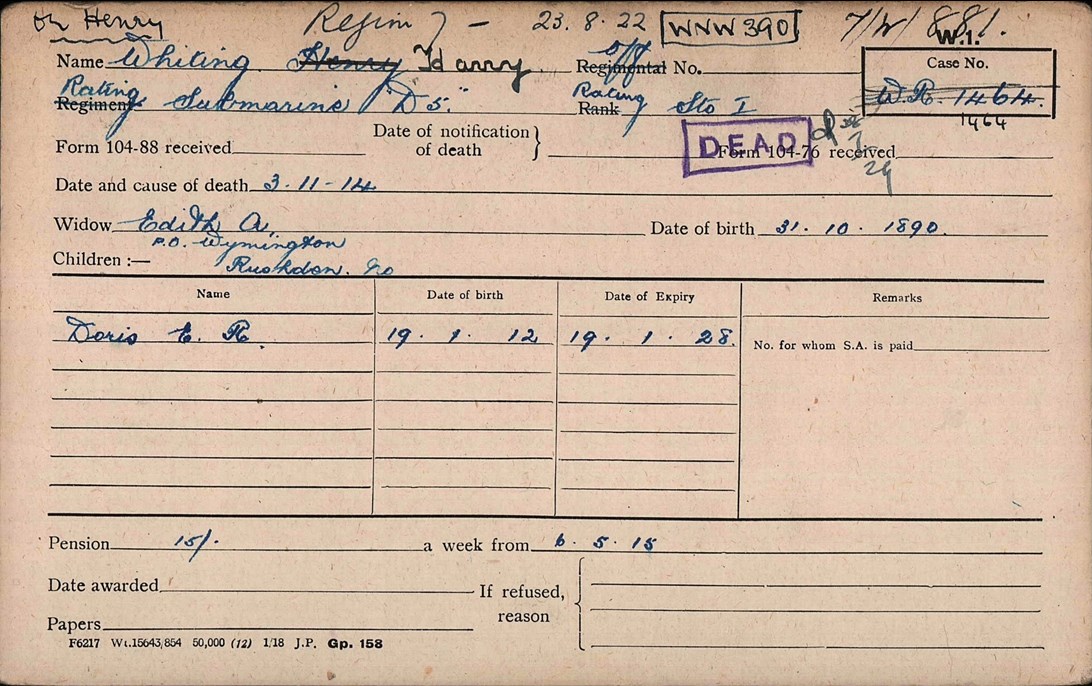 or Henry
23.8.22 WNW 390 881.
W.1.
Name Whiting Henry Harry Regimental No.
Case No.
W.R. 1464.
1464
Rating
Regiment Submarine "D5." Rating
Rank Sto I
DEAD
Form 104-88 received Date of notification of death } Form 104-76 received
29
Date and cause of death 3.11.14
Widow Edith A. Date of birth 31.10.1890.
P.O. Wymington
Children :— Rushdon.
Name Date of birth Date of Expiry Remarks
Doris E. R. 19.1.12 19.1.28.
No. for whom S.A. is paid
Pension 15/. a week from 6.5.15
Date awarded If refused, reason
Papers
F6217 Wt.15643/854 50,000 (12) 1/18 J.P. Gp. 158